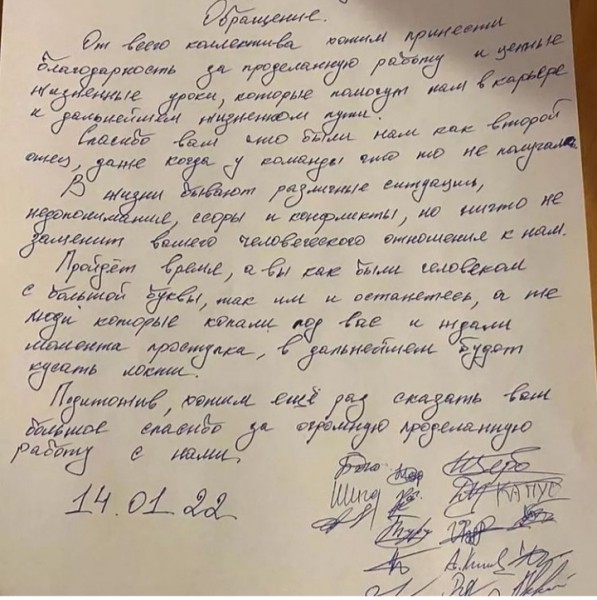 Обращение.
От всего коллектива хотим принести
благодарность за проделанную работу и ценные
жизненные уроки, которые помогут нам в карьере
и дальнейшем жизненном пути.
Спасибо вам что были нам как второй
отец, даже когда у команды что то не получалось
В жизни бывают различные ситуации,
недопонимание, ссоры и конфликты, но ничто не
заменит вашего человеческого отношения к нам.
Пройдёт время, а вы как были человеком
с большой буквы, так им и останетесь, а те
люди которые копали под вас и ждали
момента проступка, в дальнейшем будут
кусать локти.
Подитожив, хотим ещё раз сказать вам
большое спасибо за огромную проделанную
работу с нами.
14.01.22